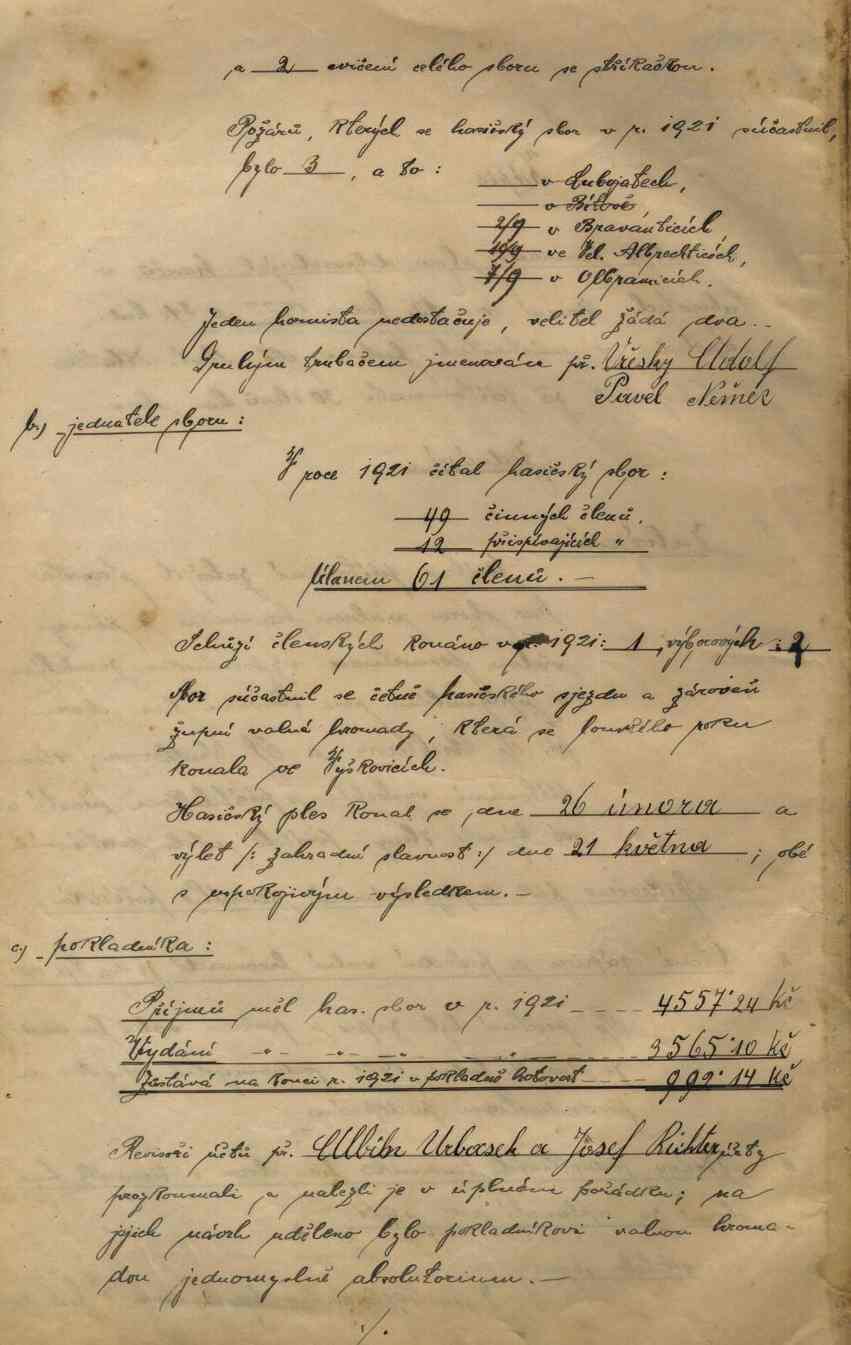 a 2 cvičení celého sboru se stříkačkou.
Požárů, kterých se hasičský sbor v r. 1921 súčastnil,
bylo 3, a to:
v Lubojatech,
v Bítově,
2/9 v Bravanticích,
19/9 ve Vel. Albrechticích,
7/9 v Olbramicích.
Jeden hornista nedostačuje, velitel žádá dva.-
Druhým trubačem jmenován př. Vřeský Adolf
Pavel Němec
b.) jednatele sboru:
V roce 1921 čítal hasičský sbor:
49 činných členů.
12 přispívajících "
Úhrnem 61 členů. -
Schůzí členských konáno v r. 1921: 1, výborových: 2
Sbor súčastnil se četně hasičského sjezdu a zároveň
župní valné hromady, která se loňského roku
konala ve Výškovicích.
Hasičský ples konal se dne 26 února a
výlet /: zahradní slavnost :/ dne 21 května; obé
s uspokojivým výsledkem. -
c.) pokladníka:
Příjmů měl has. sbor v r. 1921 ---- 4557·24 Kč
Vydání -"- -"- " -"- 3565·10 Kč
Zůstává na konci r. 1921 v pokladně hotovost ---- 992·14 Kč
Revisoři účtů př. Albin Urbasek a Josef Richter účty
prozkoumali a nalezli je v úplném pořádku; na
jejich návrh uděleno bylo pokladníkovi valnou hroma-
dou jednomyslně absolutorium. -
·/.